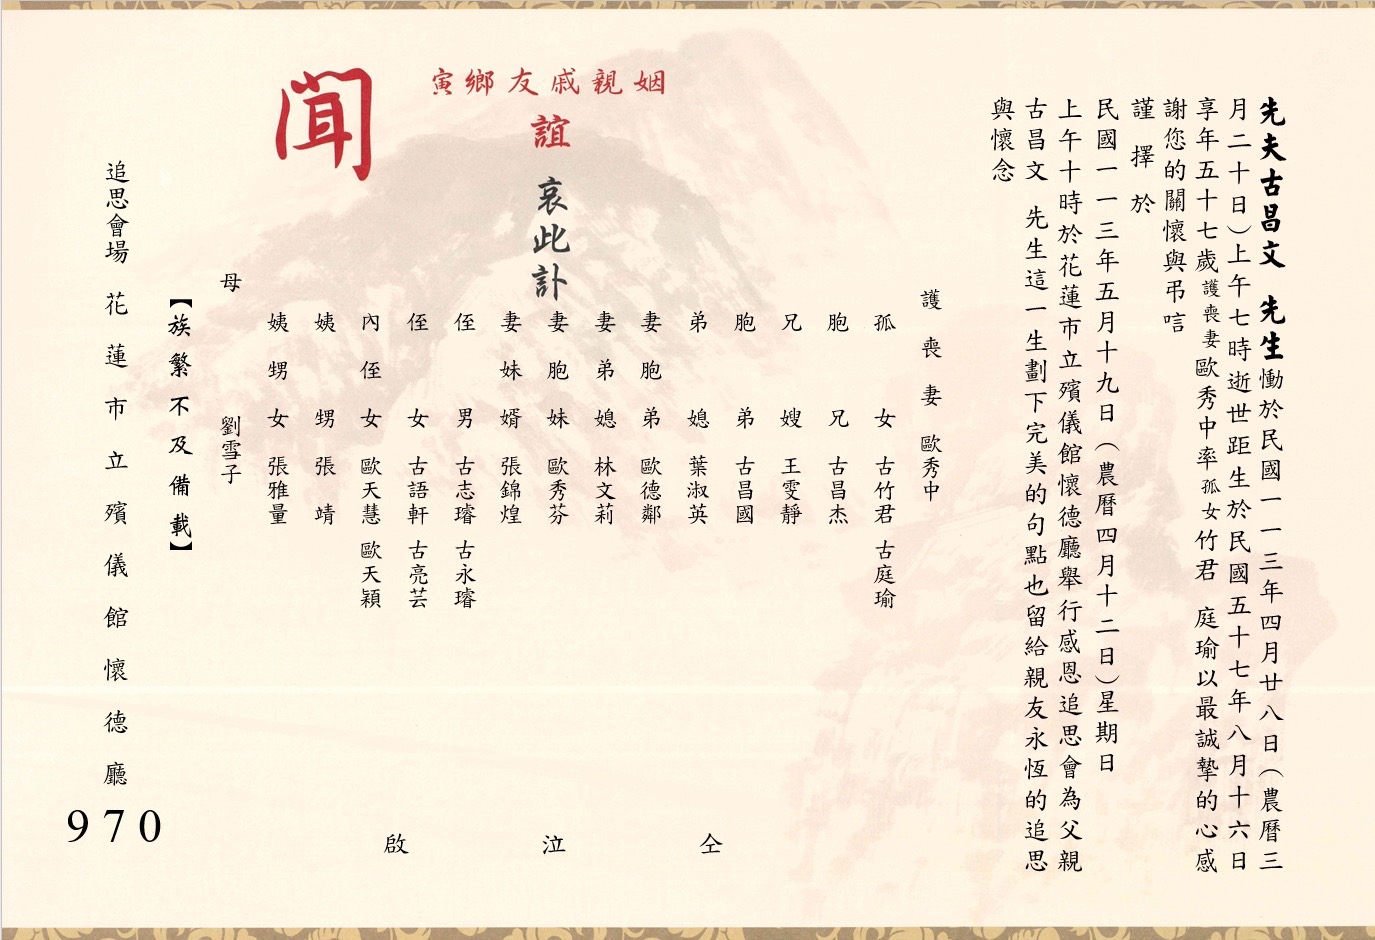 先夫古昌文 先生慟於民國一一三年四月廿八日（農曆三
月二十日）上午七時逝世距生於民國五十七年八月十六日
享年五十七歲護喪妻歐秀中率孤女竹君 庭瑜以最誠摯的心感
謝您的關懷與弔唁
謹擇於
民國一一三年五月十九日（農曆四月十二日）星期日
上午十時於花蓮市立殯儀館懷德廳舉行感恩追思會為父親
古昌文 先生這一生劃下完美的句點也留給親友永恆的追思
與懷念
護喪妻 歐秀中
孤女 古竹君 古庭瑜
胞兄 古昌杰
兄嫂 王雯靜
胞弟 古昌國
弟媳 葉淑英
妻胞弟 歐德鄰
妻弟媳 林文莉
妻胞妹 歐秀芬
妻妹婿 張錦煌
侄男 古志璿 古永璿
侄女 古語軒 古亮芸
內侄女 歐天慧 歐天穎
姨甥 張靖
姨甥女 張雅量
母 劉雪子
姻親戚友鄉寅
誼
哀此訃
聞
仝泣啟
【族繁不及備載】
追思會場 花蓮市立殯儀館懷德廳
970